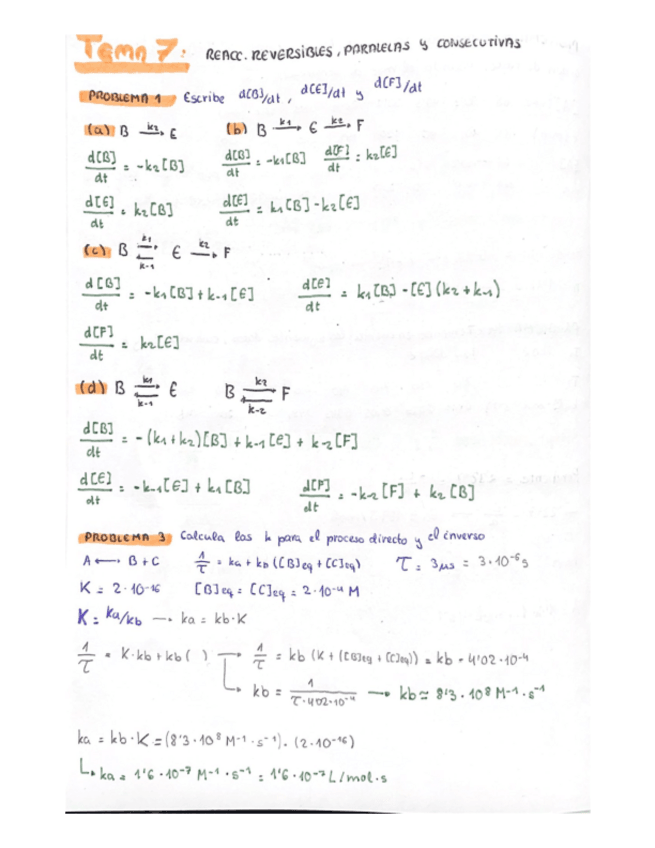 Tema 7: REACC. REVERSIBLES, PARALELAS y CONSECUTIVAS
PROBLEMA 1 Escribe d[B]/dt, d[E]/dt y d[F]/dt
(a) B →k2 E (b) B →k1 E →k2 F
d[B]/dt = -k2[B] d[B]/dt = -k1[B] d[F]/dt = k2[E]
d[E]/dt = k2[B] d[E]/dt = k1[B]-k2[E]
(c) B ⇌ k1 k-1 E →k2 F
d[B]/dt = -k1[B]+k-1[E] d[E]/dt = k1[B]-[E](k2+k-1)
d[F]/dt = k2[E]
(d) B ⇌ k1 k-1 E B ⇌ k2 k-2 F
d[B]/dt = -(k1+k2)[B]+k-1[E]+k-2[F]
d[E]/dt = -k-1[E]+k1[B] d[F]/dt = -k-2[F]+k2[B]
PROBLEMA 3 Calcula las k para el proceso directo y el inverso
A ⟷ B+C 1/τ = ka+kb([B]eq+[C]eq) τ = 3μs = 3·10⁻⁶s
K = 2·10⁻¹⁶ [B]eq = [C]eq = 2·10⁻⁴ M
K = ka/kb → ka = kb·K
1/τ = K·kb+kb( ) → 1/τ = kb(K+([B]eq+[C]eq)) = kb·4'02·10⁻⁴
↳ kb = 1/τ·4'02·10⁻⁴ → kb ≃ 8'3·10⁸ M⁻¹·s⁻¹
ka = kb·K = (8'3·10⁸ M⁻¹·s⁻¹)·(2·10⁻¹⁶)
↳ ka = 1'6·10⁻⁷ M⁻¹·s⁻¹ = 1'6·10⁻⁷ L/mol·s